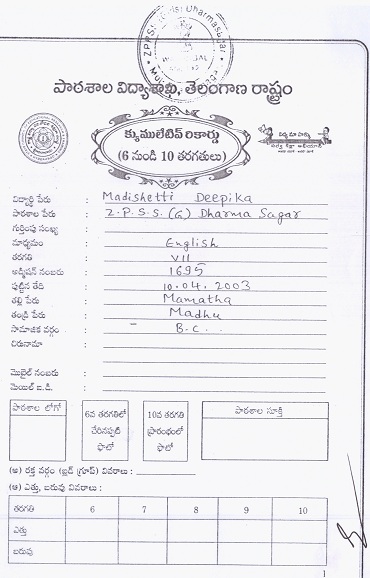 పాఠశాల విద్యాశాఖ, తెలంగాణ రాష్ట్రం
క్యుములేటివ్ రికార్డు
(6 నుండి 10 తరగతులు)
విద్యార్థి పేరు : Madishetti Deepika
పాఠశాల పేరు : Z.P.S.S.(G) Dharma Sagar
గుర్తింపు సంఖ్య :
మాధ్యమం : English
తరగతి : VII
అడ్మిషన్ నంబరు : 1695
పుట్టిన తేది : 10.04.2003
తల్లి పేరు : Mamatha
తండ్రి పేరు : Madhu
సామాజిక వర్గం : B.C.
చిరునామా :
మొబైల్ నంబరు :
మెయిల్ ఐ.డి. :
పాఠశాల లోగో
6వ తరగతిలో చేరినప్పటి ఫొటో
10వ తరగతి ప్రారంభంలో ఫొటో
పాఠశాల సూక్తి
(అ) రక్త వర్గం (బ్లడ్ గ్రూప్) వివరాలు :
(ఆ) ఎత్తు, బరువు వివరాలు :
తరగతి 6 7 8 9 10
ఎత్తు
బరువు
1